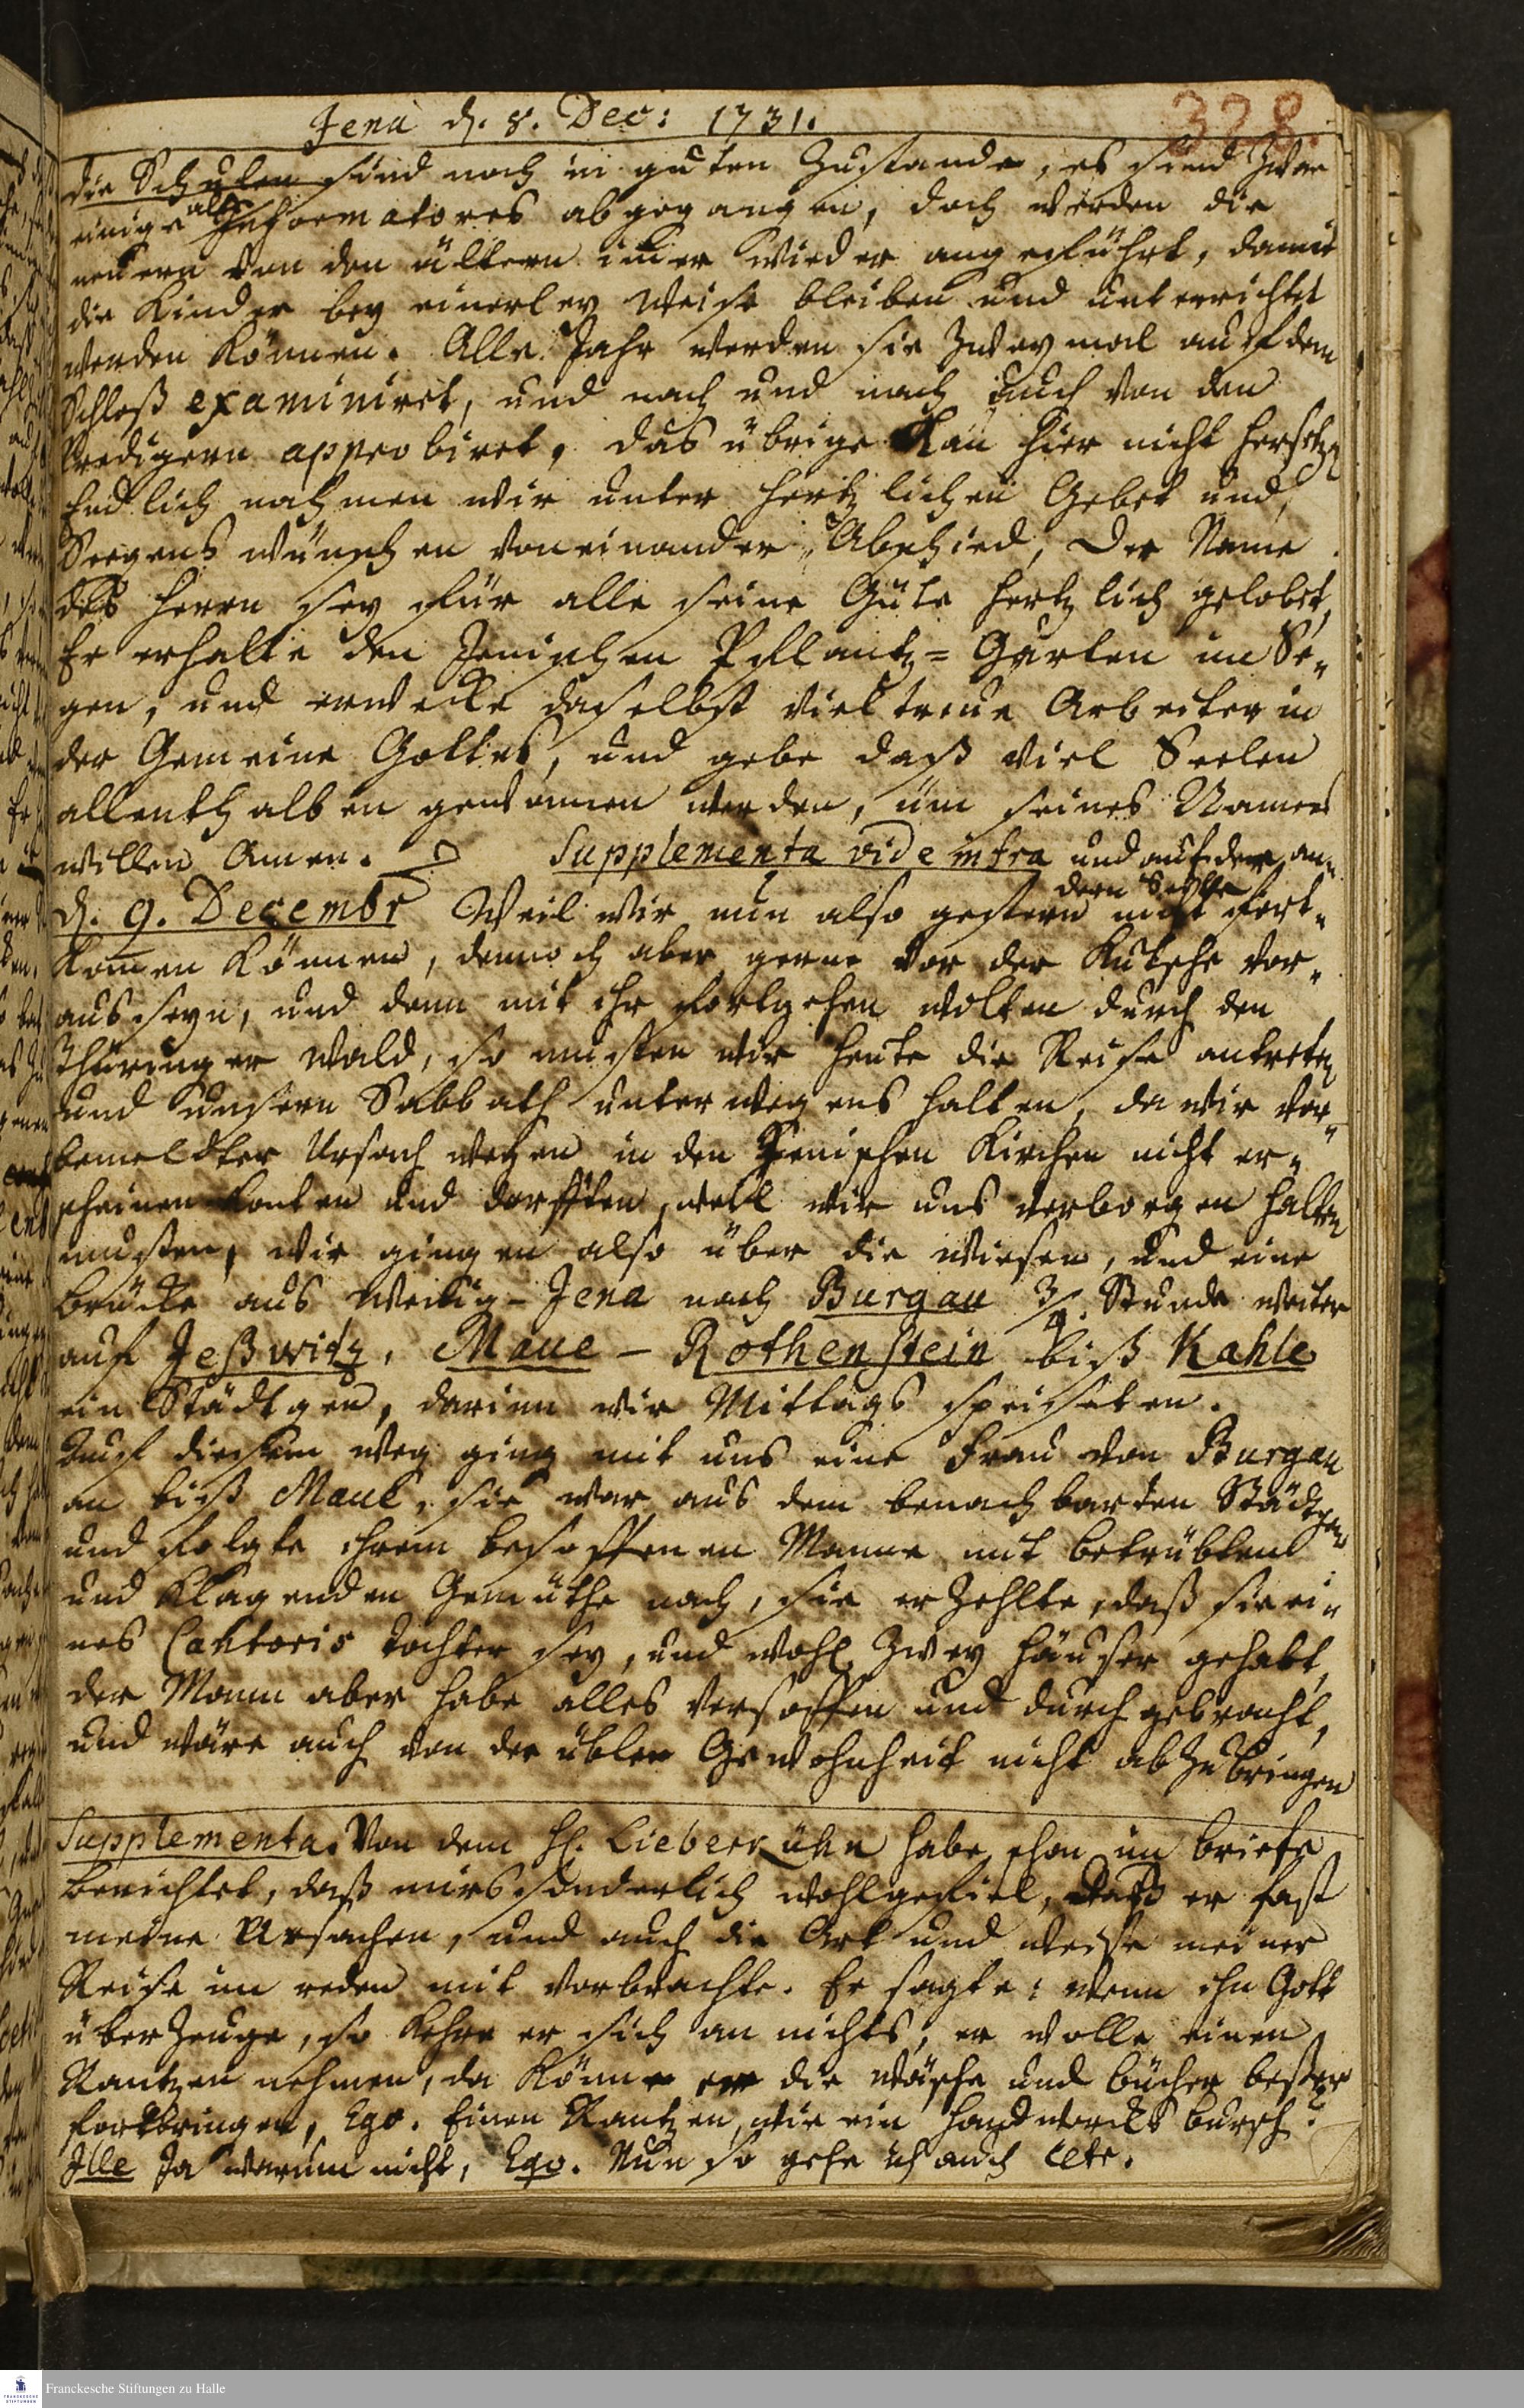 Jena d. 8. Dec: 1731.
328.
die Schulen sind noch in guten Zustande, es sind zwar
einige alte Informatores abgegangen, doch werden die
neuern von den ältern im̅er wieder angeführt, damit
die Kinder bey einerley Weise bleiben und unterrichtet
werden können. Alle Jahr werden sie zweymal auf dem
Schloß examiniret, und nach und nach auch von den
Predigern approbiret, das übrige kan hier nicht hersetzen
Endlich nahmen wir unter hertzlichen Gebet und
Seegens wünschen voneinander Abschied, der Name
des Herrn sey für alle seine Güte hertzlich gelobet,
Er erhalte den Jenischen Pflantz=Garten im Se=
gen, und erwecke daselbst viel treue Arbeiter in
der Gemeine Gottes, und gebe daß viel Seelen
allenthalben gewonnen werden, üm seines Namens
willen Amen. Supplementa vide infra und auf der an=
dern Seite
d. 9. Decembr Weil wir nun also gestern nicht fort=
kom̅en können, dennoch aber gerne vor der Kutsche vor=
aus seyn, und denn mit ihr fortgehen wolten durch den
Thüringer Wald, so musten wir heute die Reise antreten
und unsern Sabbath unterwegens halten, da wir vor=
bemeldter Ursach wegen in den Jenischen Kirchen nicht er=
scheinen konten und dorfften, weil wir uns verborgen halten
musten, wir gingen also über die Wiesen, und eine
Brücke aus Wenig-Jena nach Burgau 3/4. Stunde weiter
auf Jeßwitz, Maue - Rothenstein biß Kahle
ein Städtgen, darinn wir Mittags speiseten.
Auf diesem Weg ging mit uns eine Frau von Burgau
an biß Maue, sie war aus dem benachbarten Städtgen
und folgte ihrem besoffenen Manne mit betrübten
und klagenden Gemüthe nach, sie erzehlte, daß sie ei=
nes Cantoris Tochter sey, und wohl zwey Häuser gehabt,
der Mann aber habe alles versoffen und durchgebracht,
und wäre auch von der üblen Gewohnheit nicht abzubringen
Supplementa. Von dem H. Lieberkühn habe schon im Briefe
berichtet, daß mirs sonderlich wohlgefiel, daß er fast
meine Ursachen, und auch die Art und Weise meiner
Reise im reden mit vorbrachte. Er sagte: wenn ihn Gott
überzeuge, so kehre er sich an nichts, er wolle einen
Rantzen nehmen, da könne er die Wäsche und Bücher beßer
fortbringen, Ego. Einen Rantzen, wie ein Handwercks bursch?
Ille Ja warum nicht, Ego. Nun so gehe ich auch cetr.
Franckesche Stiftungen zu Halle